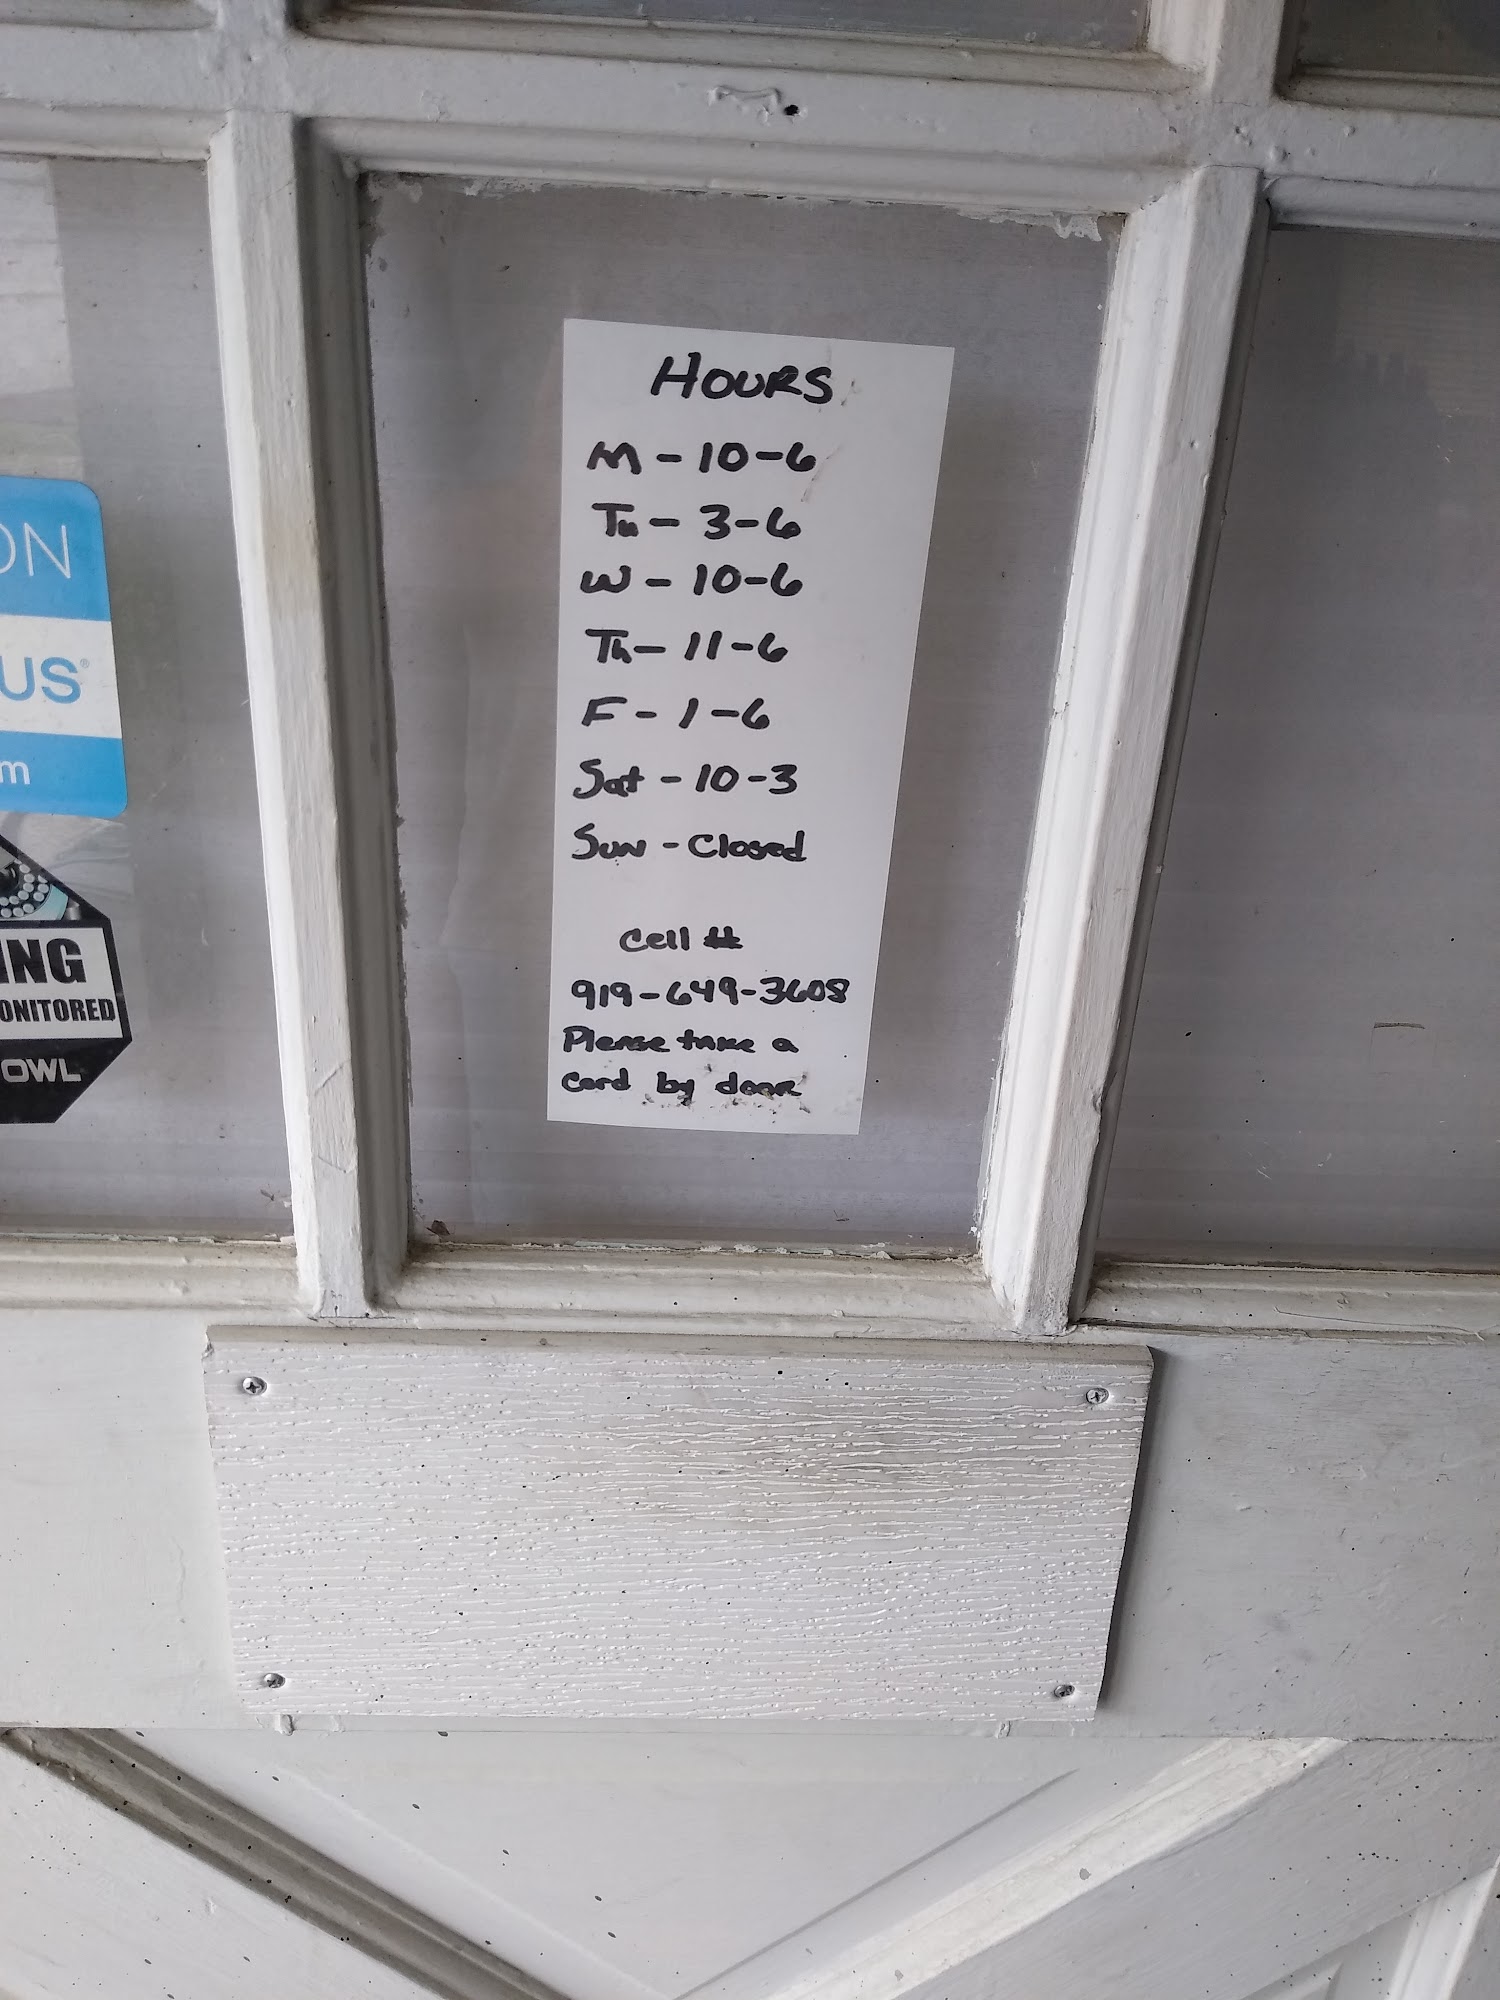 HOURS
M - 10-6
Tu - 3-6
W - 10-6
Th - 11-6
F - 1-6
Sat - 10-3
Sun - Closed
Cell #
919-649-3608
Please take a
card by door
ON
US®
m
ING
ONITORED
OWL